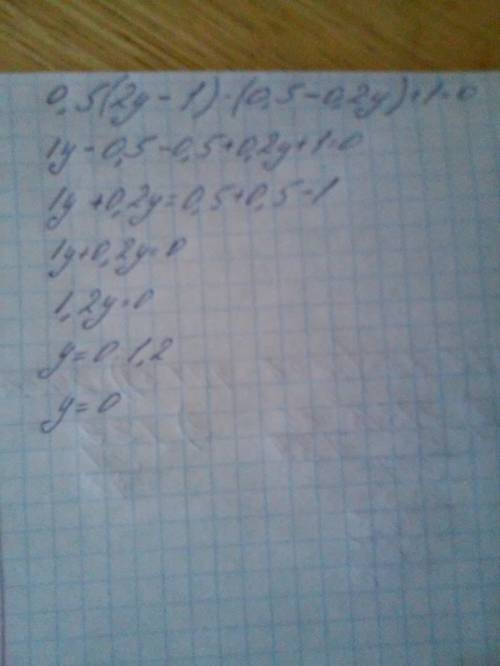 0,5(2y-1)-(0,5-0,2y)+1=0
1y-0,5-0,5+0,2y+1=0
1y+0,2y=0,5+0,5-1
1y+0,2y=0
1,2y=0
y=0:1,2
y=0